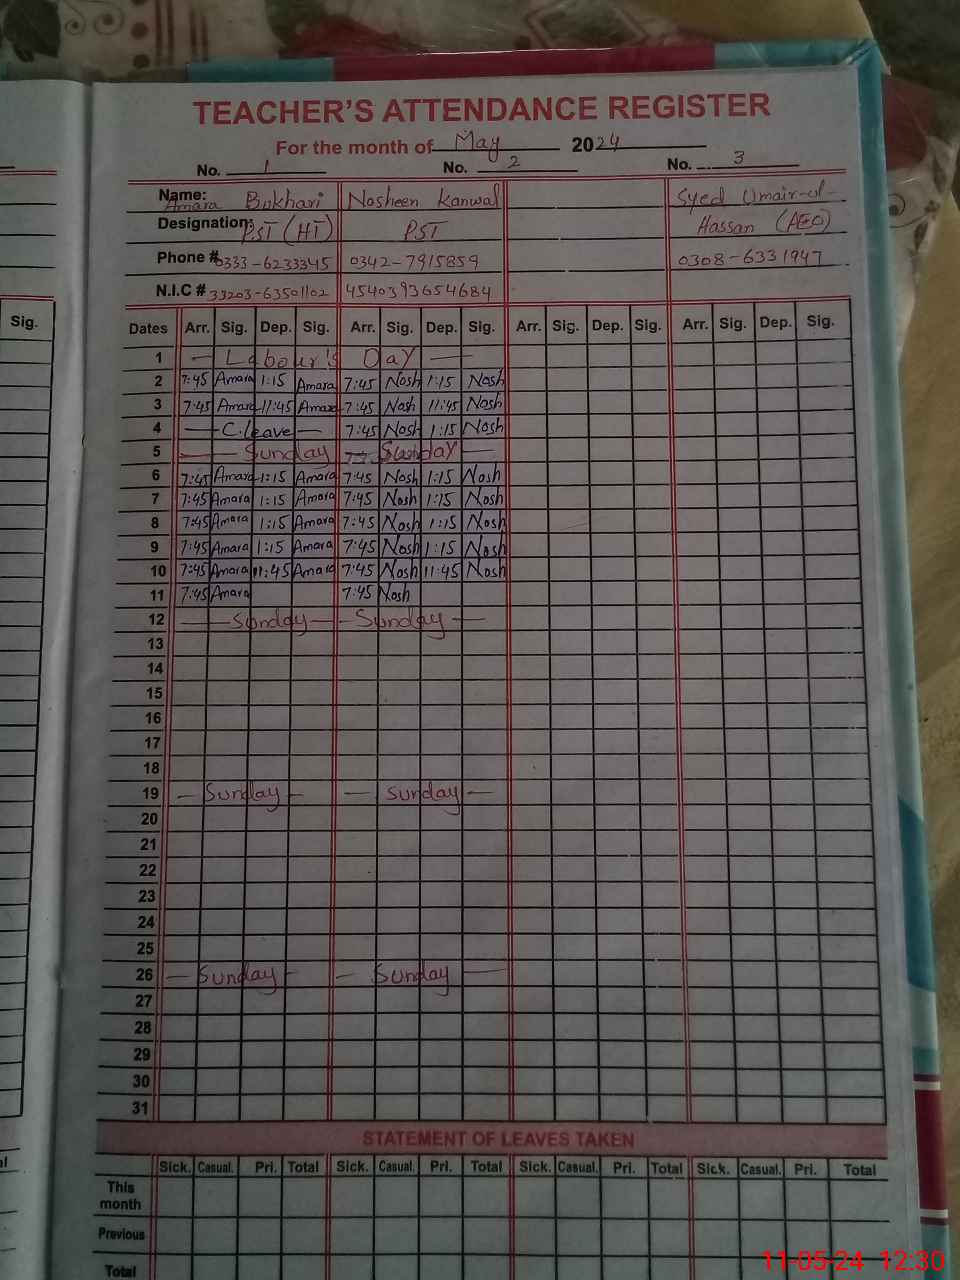 TEACHER'S ATTENDANCE REGISTER
For the month of May 2024
No. 1 No. 2 No. 3
Name: Amara Bukhari Nosheen Kanwal Syed Umair-ul-
Designation: PST (HT) PST Hassan (AEO)
Phone # 0333-6233345 0342-7915859 0308-6331947
N.I.C # 33203-63501102 4540393654684
Sig. Dates Arr. Sig. Dep. Sig. Arr. Sig. Dep. Sig. Arr. Sig. Dep. Sig. Arr. Sig. Dep. Sig.
1 — Labour's Day —
2 7:45 Amara 1:15 Amara 7:45 Nosh 1:15 Nosh
3 7:45 Amara 11:45 Amara 7:45 Nosh 11:45 Nosh
4 — C.leave — 7:45 Nosh 1:15 Nosh
5 — Sunday — Sunday —
6 7:45 Amara 1:15 Amara 7:45 Nosh 1:15 Nosh
7 7:45 Amara 1:15 Amara 7:45 Nosh 1:15 Nosh
8 7:45 Amara 1:15 Amara 7:45 Nosh 1:15 Nosh
9 7:45 Amara 1:15 Amara 7:45 Nosh 1:15 Nosh
10 7:45 Amara 11:45 Amara 7:45 Nosh 11:45 Nosh
11 7:45 Amara 7:45 Nosh
12 — Sunday — — Sunday —
13
14
15
16
17
18
19 — Sunday — — Sunday —
20
21
22
23
24
25
26 — Sunday — — Sunday —
27
28
29
30
31
STATEMENT OF LEAVES TAKEN
Sick. Casual. Pri. Total Sick. Casual. Pri. Total Sick. Casual. Pri. Total Sick. Casual. Pri. Total
This
month
Previous
Total
11-05-24 12:30